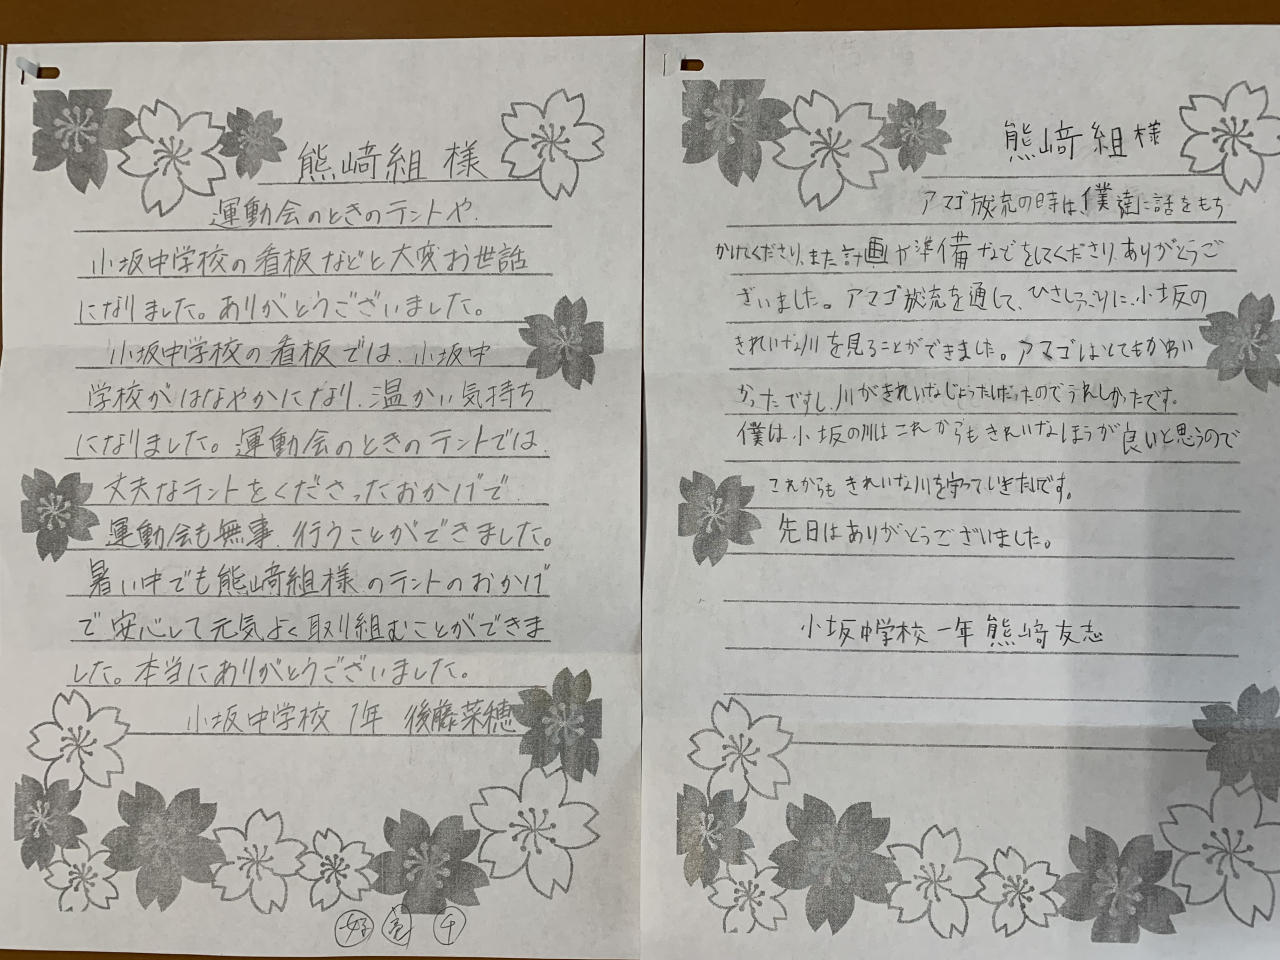 熊﨑組 様
運動会のときのテントや、
小坂中学校の看板などと大変お世話
になりました。ありがとうございました。
小坂中学校の看板では、小坂中
学校がはなやかになり、温かい気持ち
になりました。運動会のときのテントでは、
丈夫なテントをくださったおかげで、
運動会も無事、行うことができました。
暑い中でも熊﨑組様のテントのおかげ
で安心して元気よく取り組むことができま
した。本当にありがとうございました。
小坂中学校 1年 後藤菜穂
熊﨑組様
アマゴ放流の時は、僕達に話をもち
かけてくださり、また計画や準備などをしてくださり、ありがとうご
ざいました。アマゴ放流を通して、ひさしぶりに、小坂の
きれいな川を見ることができました。アマゴはとてもかわい
かったですし、川がきれいなじょうたいだったのでうれしかったです。
僕は小坂の川はこれからもきれいなほうが良いと思うので
これからもきれいな川を守っていきたいです。
先日はありがとうございました。
小坂中学校 一年 熊﨑友志